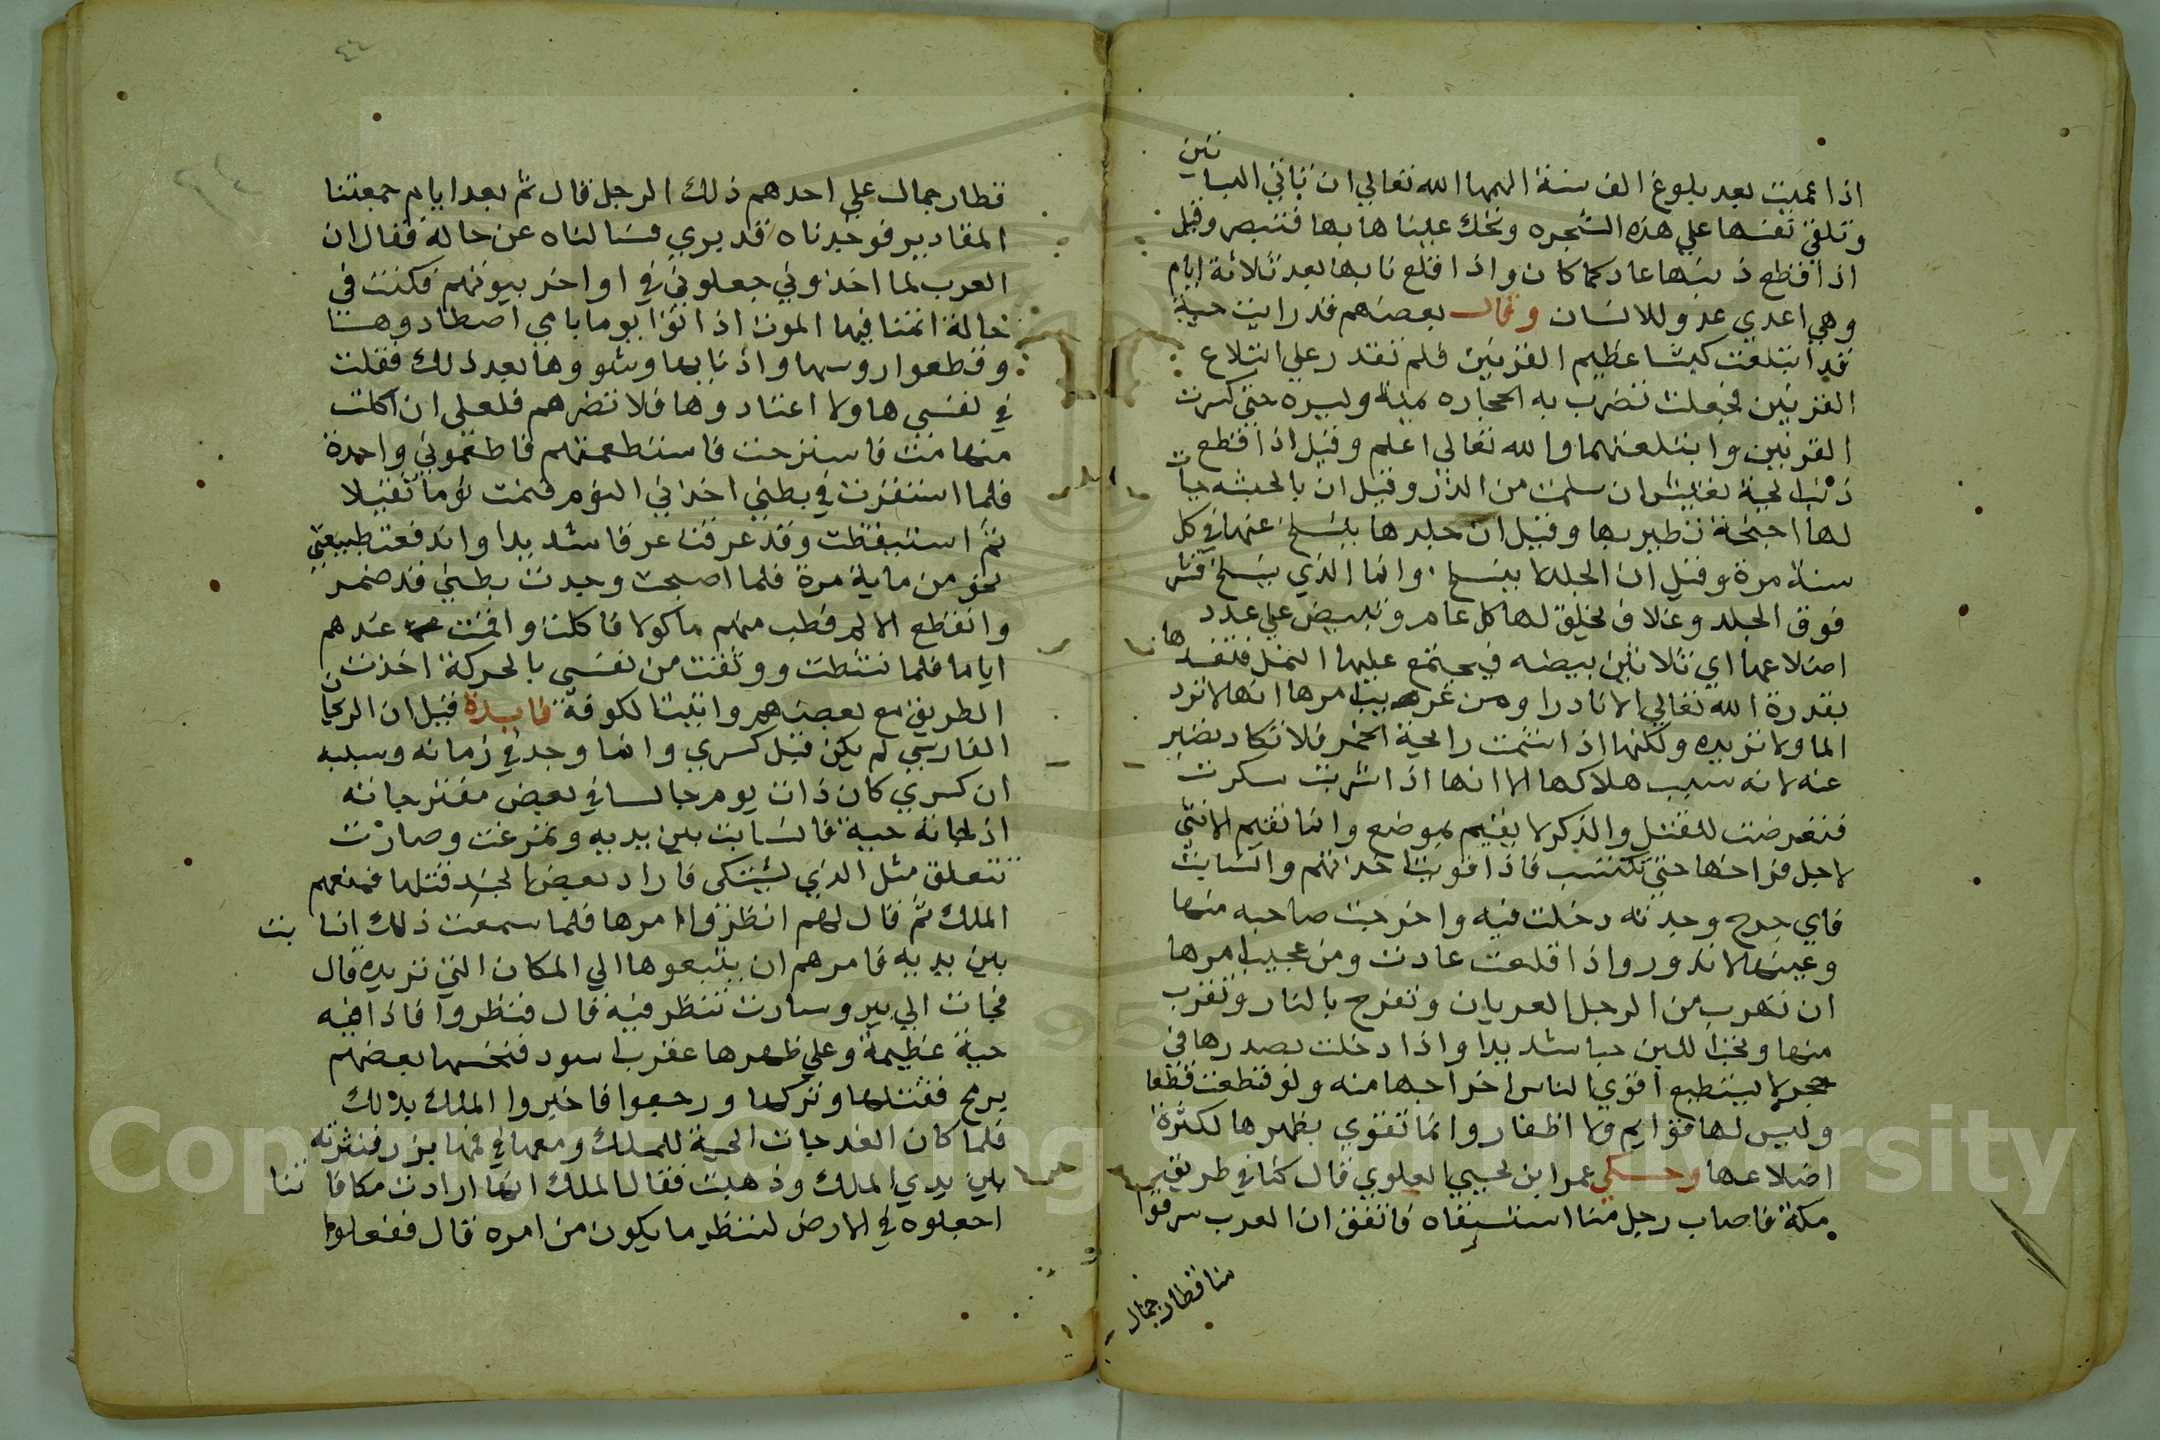 اذا عميت بعد بلوغ الف سنة الهمها الله تعالي ان تاتي البساتين
وتلقي نفسها علي هذه الشجره وتحك عليناها بها فتبصر وقيل
اذا قطع ذنبها عاد كما كان واذا قلع نابها بعد ثلاثة ايام
وهي اعدي عدو للانسان وقال بعضهم قد رايت حية
قد ابتلعت كبشا عظيم القرنين فلم تقدر علي ابتلاع
القرنين فجعلت تضرب به الحجاره يمنة ويسره حتي كسرت
القرنين وابتلعتهما والله تعالي اعلم وقيل اذا قطع
ذنب الحية تعيش ان سلمت من الذر وقيل ان بالحبشه حيات
لها اجنحة تطير بها وقيل ان جلدها ينسلخ عنها في كل
سنة مرة وقيل ان الجلد لا ينسلخ وانما الذي ينسلخ قشر
فوق الجلد وغلاف يخلق لها كل عام وتبيض علي عدد
اضلاعها اي ثلاثين بيضه فيجتمع عليها النمل فتفسدها
بقدرة الله تعالي الا نادرا ومن غريب امرها انها لا ترد
الما ولا تزيده ولكنها اذا شمت رايحة الخمر فلا تكاد تصبر
عنه لانه سبب هلاكها الا انها اذا شربت سكرت
فتعرضت للقتل والذكر لا يقيم بموضع وانما تقيم الانثي
لاجل فراخها حتي تكتسب فاذا قويت اخذتهم وانسابت
فاي جحر وجدته دخلت فيه واخرجت صاحبه منها
وعينها لا تدور واذا قلعت عادت ومن عجيب امرها
ان تهرب من الرجل العريان وتفرح بالنار وتقرب
منها وتحب اللبن حبا شديدا واذا دخلت بصدرها في
جحر لا يستطيع اقوي الناس اخراجها منه ولو قطعت قطعا
وليس لها قوايم ولا اظفار وانما تقوي بظهرها لكثرة
اضلاعها وحكي عمر ابن يحيي العلوي قال كنا في طريق
مكة فاصاب رجل منا استسقاه فاتفق ان العرب سرقوا
منا قطار جمال
قطار جمال علي احدهم ذلك الرجل قال ثم بعد ايام جمعتنا
المقادير فوجدناه قد بري فسالناه عن حاله فقال ان
العرب لما اخذوني جعلوني في اواخر بيوتهم فكنت في
حالة اتمنا فيها الموت اذ اتوا يوما بافاعي اصطادوها
وقطعوا روسها واذنابها وشووها بعد ذلك فقلت
في نفسي هاولا اعتادوها فلا تضرهم فلعلي ان اكلت
منها مت فاسترحت فاستطعمتهم فاطعموني واحدة
فلما استقرت في بطني اخذني النوم فنمت نوما ثقيلا
ثم استيقظت وقد عرقت عرقا شديدا واندفعت طبيعتي
نحو من ماية مرة فلما اصبحت وجدت بطني قد ضمر
وانقطع الالم فطلبت منهم ماكولا فاكلت واقمت عندهم
اياما فلما نشطت ووثقت من نفسي بالحركة اخذت
الطريق مع بعضهم واتيت الكوفة فايدة قيل ان الريحان
الفارسي لم يكن قبل كسري وانما وجد في زمانه وسببه
ان كسري كان ذات يوم جالسا في بعض مفترجاته
اذ جاته حية فانسابت بين يديه وتمرغت وصارت
تتعلق مثل الذي يشتكي فاراد بعض الجند قتلها فمنعهم
الملك ثم قال لهم انظروا امرها فلما سمعت ذلك انسابت
بين يديه فامرهم ان يتبعوها الي المكان التي تريده قال
فجات الي بير وصارت تنظر فيه قال فنظروا فاذا فيه
حية عظيمة وعلي ظهرها عقرب اسود فنخسها بعضهم
برمح فقتلها وتركها ورجعوا فاخبروا الملك بذلك
فلما كان الغد جات الحية للملك ومعها في فمها بزر فنثرته
بين يدي الملك وذهبت فقال الملك انها ارادت مكافاتنا
اجعلوه في الارض لننظر ما يكون من امره قال ففعلوا
Copyright © King Saud University